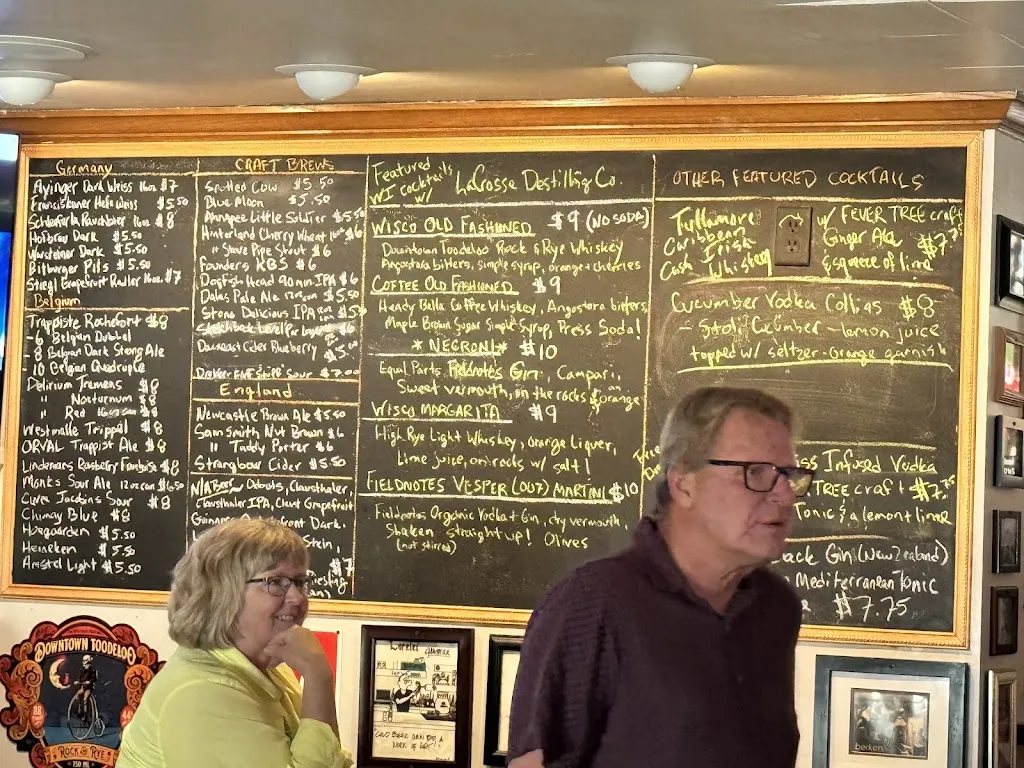 Germany
Ayinger Dark Weiss 16oz. $7
Franciskaner Hefeweiss $5.50
Schlenferla Rauchbier 16oz. $8
Hofbrau Dark $5.50
Warsteiner Dark $5.50
Bitburger Pils $5.50
Stiegl Grapefruit Radler 16oz. $7
Belgium
Trappiste Rochefort $8
- 6 Belgian Dubbel
- 8 Belgian Dark Strong Ale
- 10 Belgian Quadruple
Delirium Tremens $8
" Nocturnum $8
" Red 16oz can $8
Westmalle Trippel $8
ORVAL Trappist Ale $8
Lindemans Raspberry Framboise $8
Monks Sour Ale 12oz can $6.50
Cuvee Jacobins Sour $8
Chimay Blue $8
Hoegaarden $5.50
Heineken $5.50
Amstel Light $5.50
CRAFT BREWS
Spotted Cow $5.50
Blue Moon $5.50
Ahnapee Little Soldier $5.50
Hinterland Cherry Wheat 16oz $6
" Stove Pipe Stout $6
Founders KBS $6
Dogfish Head 90 min IPA $6
Dales Pale Ale 12oz can $5.50
Stone Delicious IPA
Downeast Cider Blueberry $5.00
$7.00
England
Newcastle Brown Ale $5.50
Sam Smith Nut Brown $6
" Taddy Porter $6
Strangbow Cider $5.50
N/A Beers Odouls, Clausthaler,
Clausthaler IPA, Claust Grapefruit
Dark.
$7
Featured
WI Cocktails
w/
LaCrosse Destilling Co.
WISCO OLD FASHIONED $9 (NO SODA)
Downtown Toodeloo Rock & Rye Whiskey
Angostura bitters, simple syrup, orange + cherries
COFFEE OLD FASHIONED $9
Heady Bella Coffee Whiskey, Angostora bitters,
Maple Brown Sugar Simple Syrup, Press Soda!
* NEGRONI * $10
Equal Parts Fieldnotes Gin, Campari,
Sweet vermouth, on the rocks & orange
WISCO MARGARITA $9
High Rye Light Whiskey, orange liquer,
Lime juice, on rocks w/ salt!
FIELDNOTES VESPER (007) MARTINI $10
Fieldnotes Organic Vodka + Gin, dry vermouth,
Shaken straight up! Olives
(not stirred)
OTHER FEATURED COCKTAILS
Tullamore
Caribbean
Cask Irish
Whiskey
w/ FEVER TREE craft
Ginger Ale
& squeeze of lime $7.75
Cucumber Vodka Collins $8
- Stoli Cucumber - lemon juice
topped w/ seltzer - Orange garnish
Infused Vodka
TREE craft $7.75
Tonic & a lemon + lime
Gin (New Zealand)
Mediterranean Tonic
$7.75
DOWNTOWN TOODELOO
ROCK AND RYE
750 ML